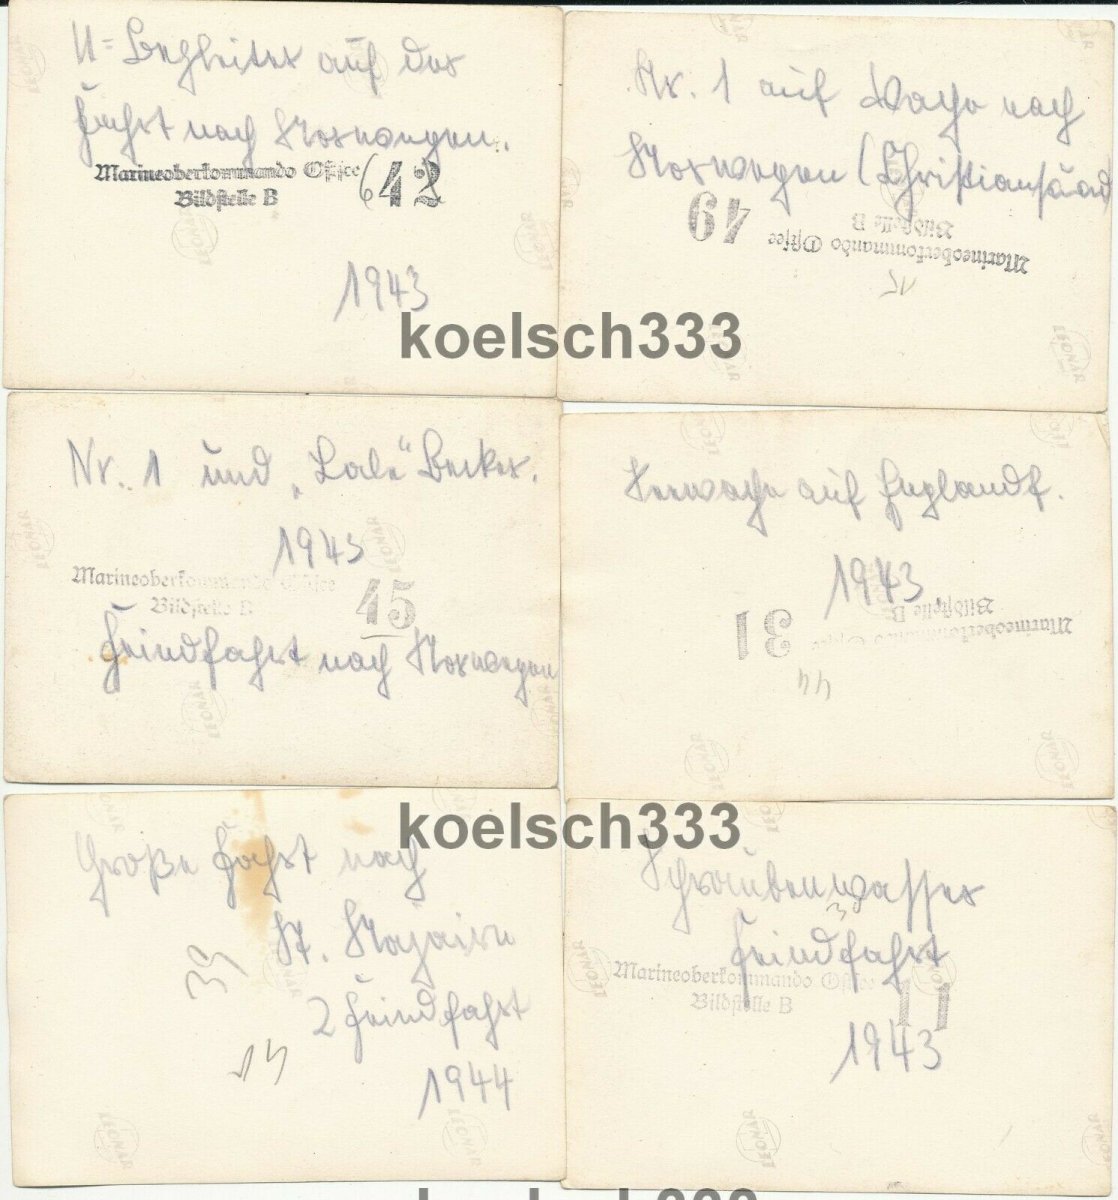 U=Begleiter auf der
Fahrt nach Norwegen.
Marineoberkommando Ostsee
Bildstelle B
42
1943
Nr. 1 auf Wache nach
Norwegen (Christiansand
49
Marineoberkommando Ostsee
Bildstelle B
15
koelsch333
Nr. 1 und "Lale" Becker.
1943
Marineoberkommando Ostsee
Bildstelle B
45
Feindfahrt nach Norwegen
Seewache auf Englandf.
1943
Marineoberkommando Ostsee
Bildstelle B
31
44
koelsch333
Große Fahrt nach
St. Nazaire
2 Feindfahrt
1944
39
14
Schraubenwasser
30
Feindfahrt
Marineoberkommando Ostsee
Bildstelle B
11
1943
LEONAR